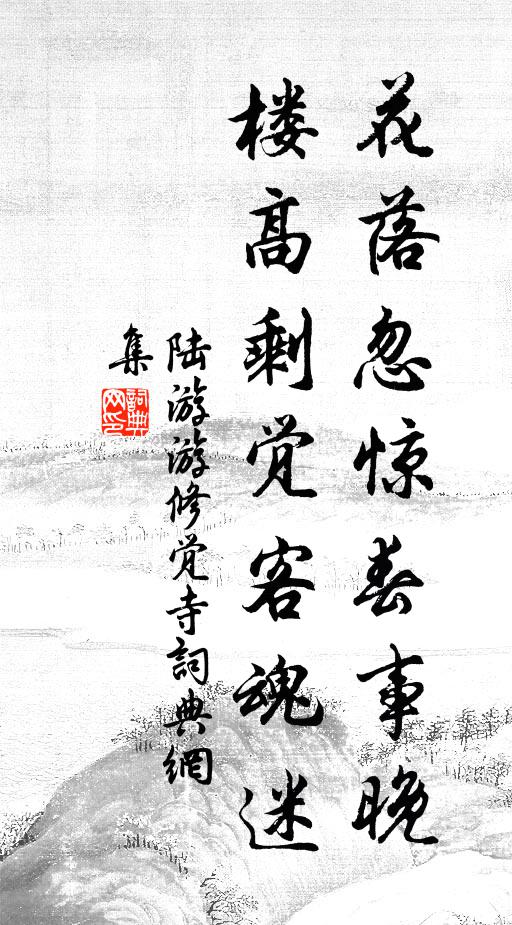 花落忽惊春事晚
楼高剩觉客魂迷
陆游游修觉寺詞典網
集
詞典网印